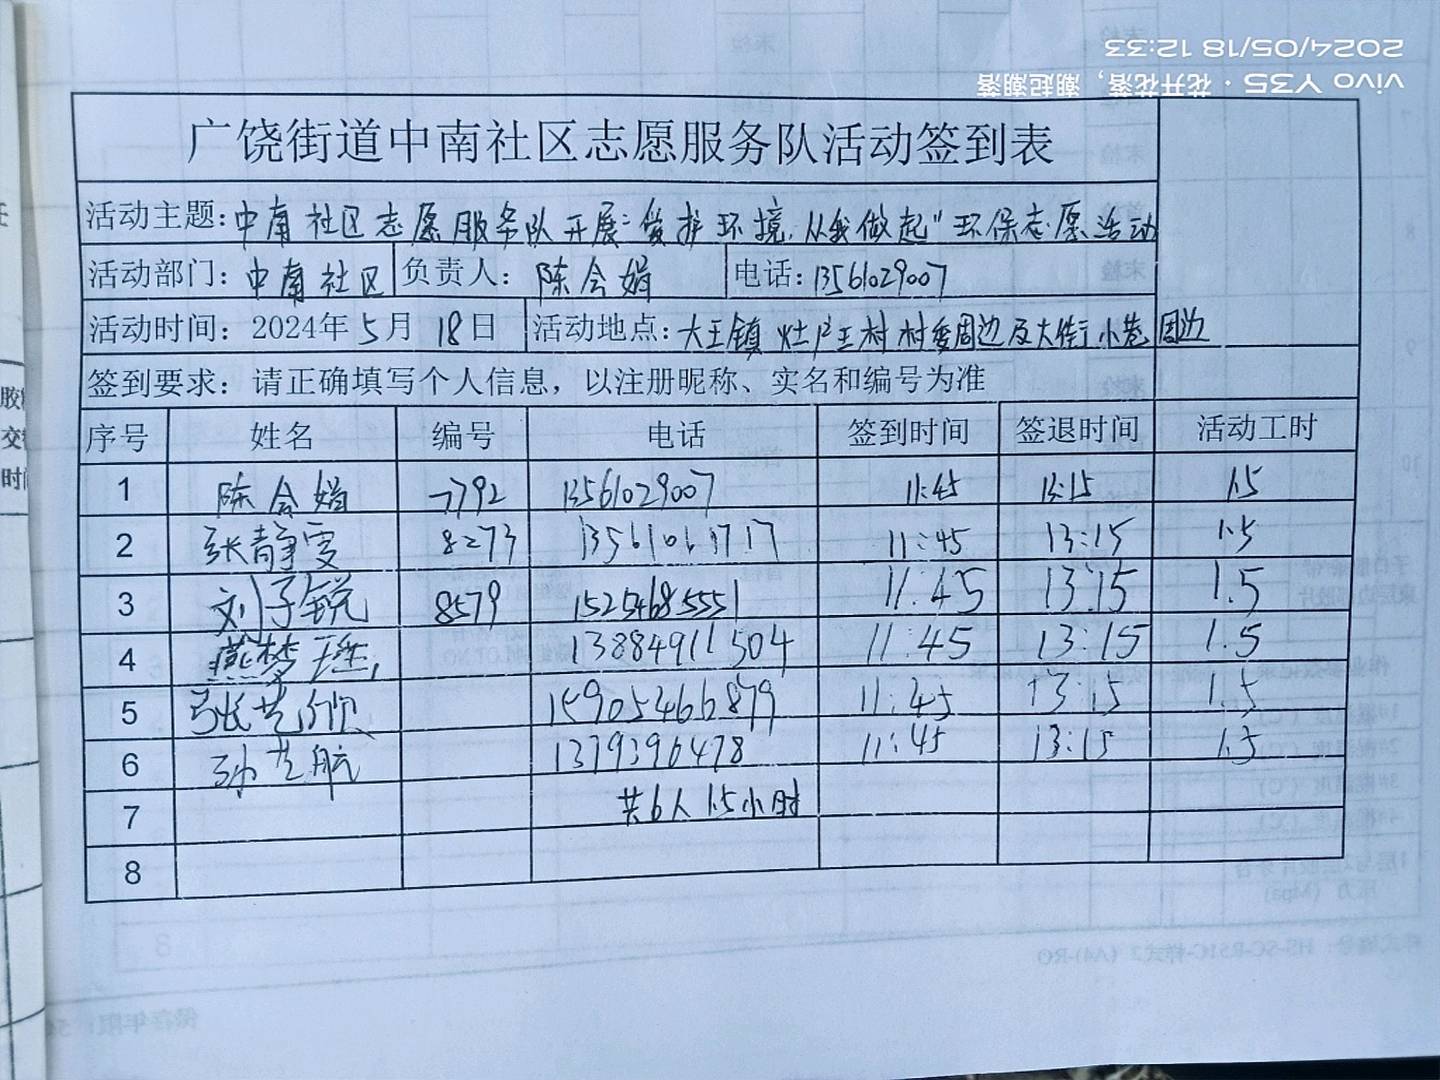 2024/05/18 12:33
vivo Y35 · 花开花落，潮起潮落
广饶街道中南社区志愿服务队活动签到表
活动主题：中南社区志愿服务队开展"爱护环境，从我做起"环保志愿活动
活动部门：中南社区 负责人：陈会娟 电话：13561029007
活动时间：2024年5月18日 活动地点：大王镇灶户王村村委周边及大街小巷周边
签到要求：请正确填写个人信息，以注册昵称、实名和编号为准
序号 姓名 编号 电话 签到时间 签退时间 活动工时
1 陈会娟 7792 13561029007 11:45 13:15 1.5
2 张静雯 8273 13561061717 11:45 13:15 1.5
3 刘子锐 8579 15254685551 11:45 13:15 1.5
4 燕梦瑶 13884911504 11:45 13:15 1.5
5 张艺欣 15905466879 11:45 13:15 1.5
6 孙艺航 1379396478 11:45 13:15 1.5
7 共6人 1.5小时
8